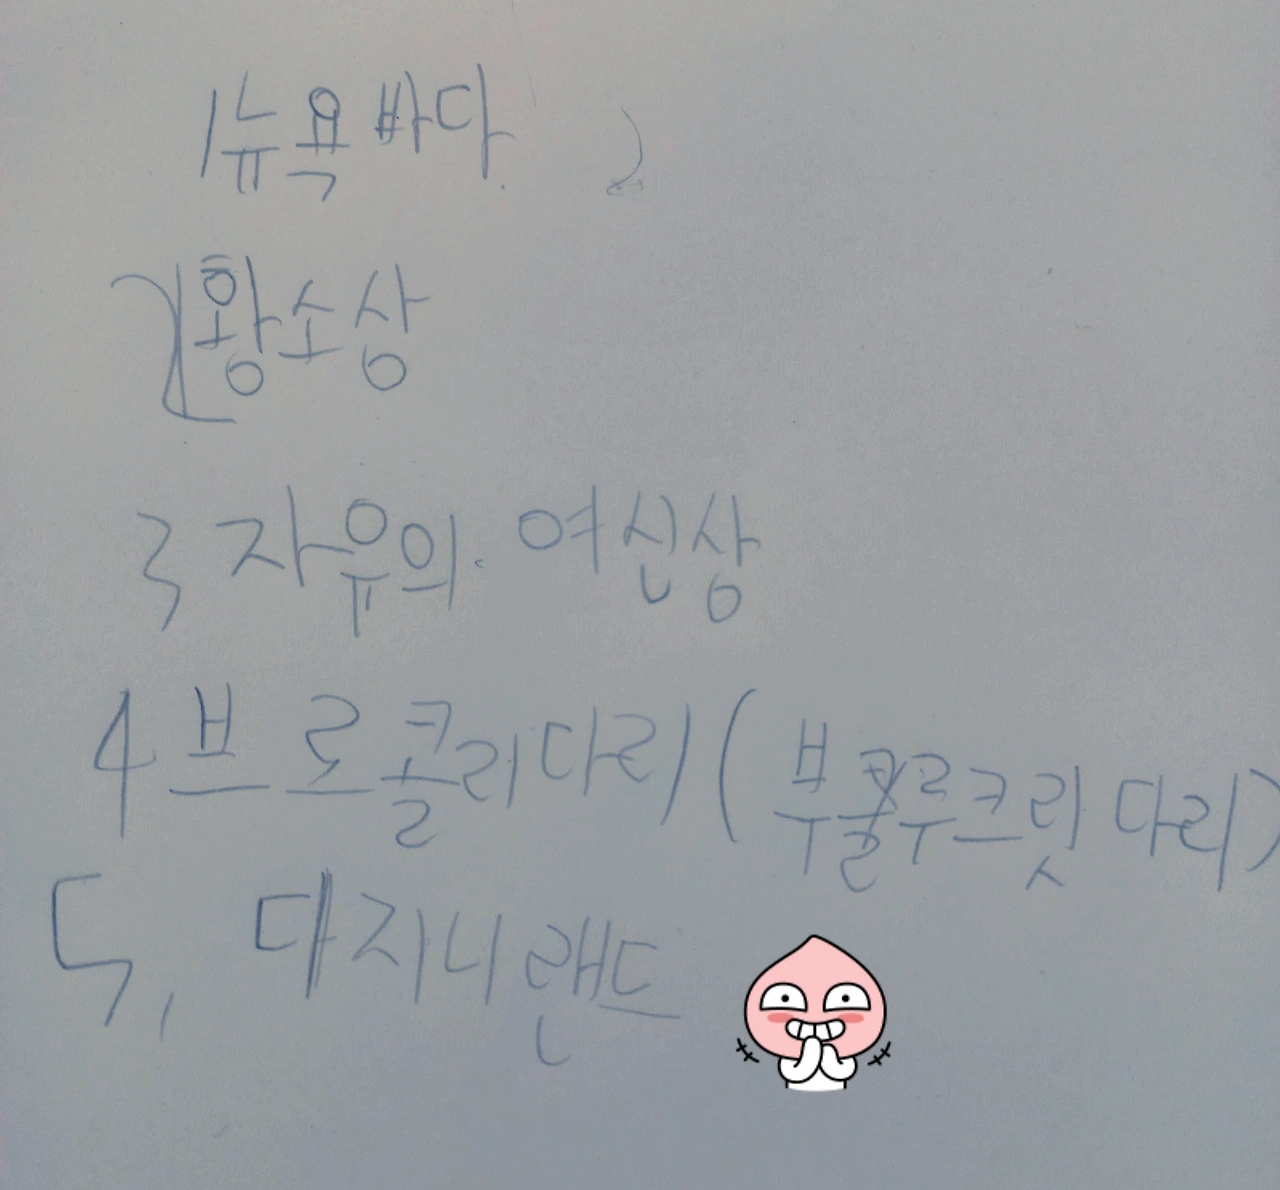 1 뉴욕 바다
2 황소상
3 자유의 여신상
4 브로콜리다리 (부루크릿 다리)
5, 다지니랜드